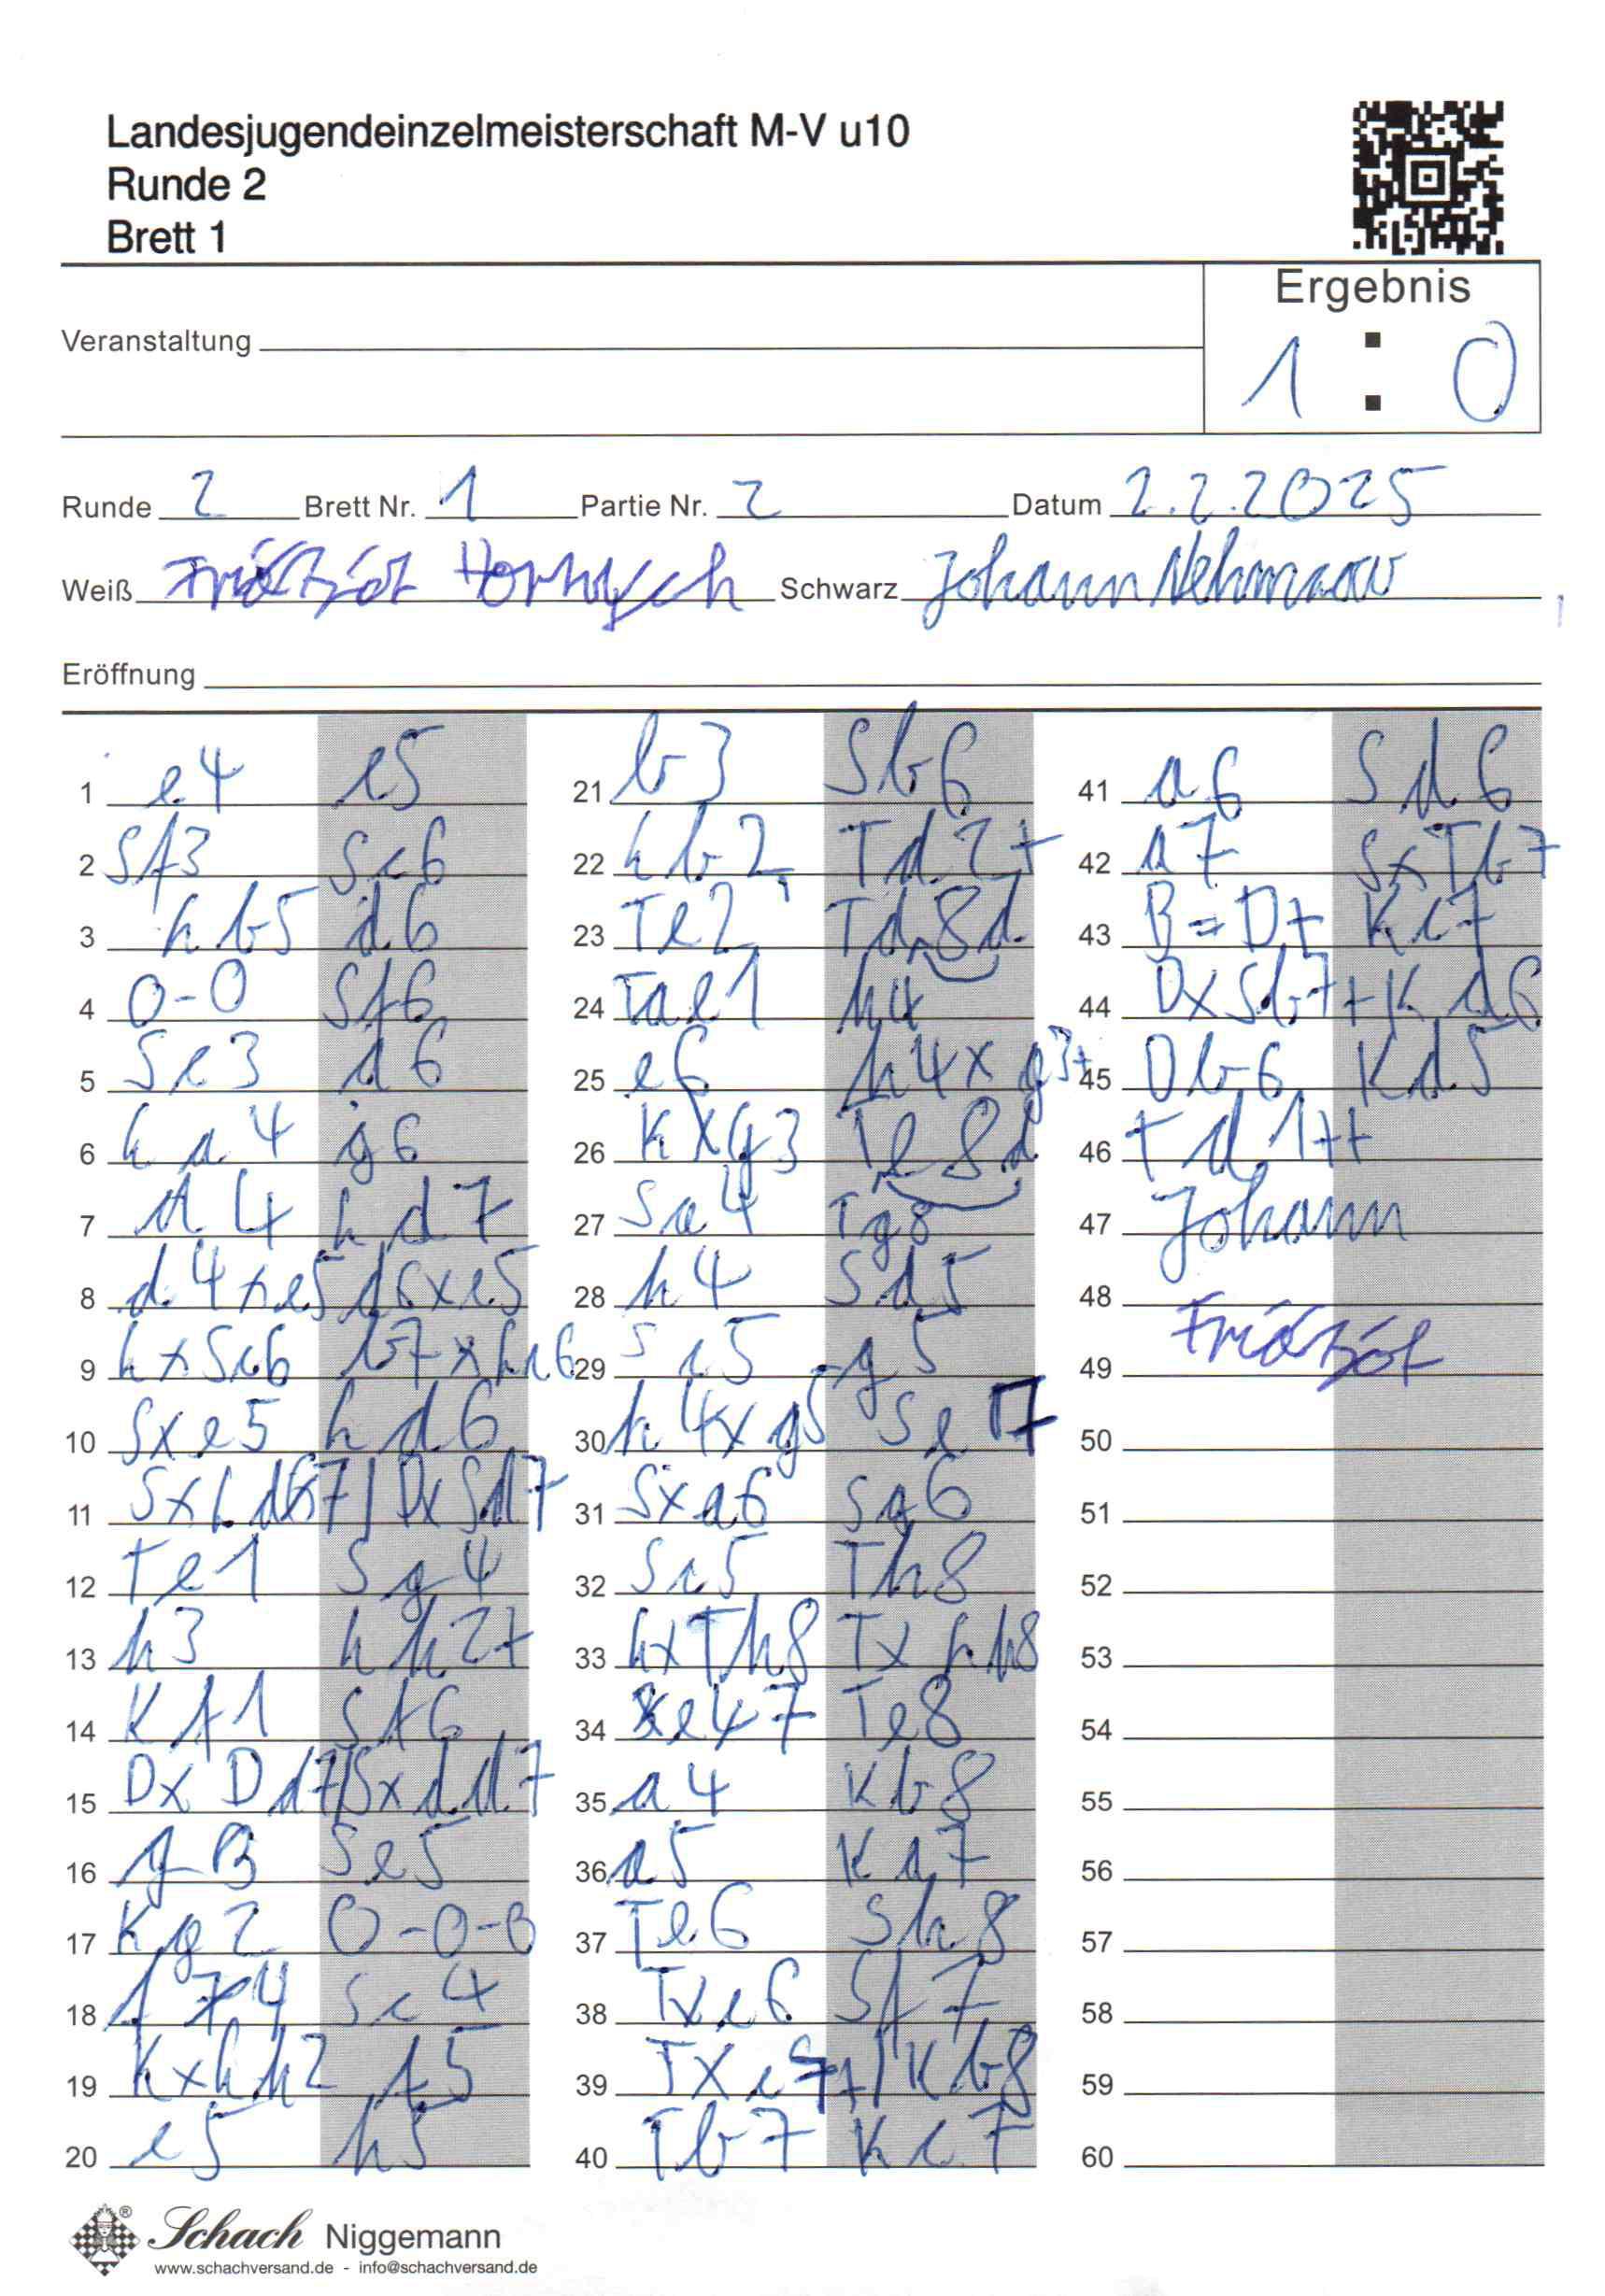 Landesjugendeinzelmeisterschaft M-V u10
Runde 2
Brett 1
Ergebnis
1 : 0
Veranstaltung
Runde 2 Brett Nr. 1 Partie Nr. 2 Datum 2.2.2025
Weiß Schwarz Johann
Eröffnung
1 e4 e5
2 Sf3 Sc6
3 Lb5 d6
4 0-0 Sf6
5 Sc3 a6
6 La4 g6
7 d4 Ld7
8 d4xe5 d6xe5
9 LxSc6 b7xLc6
10 Sxe5 Ld6
11 SxLd7 DxSd7
12 Te1 Sg4
13 h3 Lh2+
14 Kf1 Sf6
15 DxDd7 Sxdd7
16 g3 Se5
17 Kg2 0-0-0
18 f4 Sc4
19 KxLh2 f5
20 e5 h5
21 b3 Sb6
22 Lb2 Td2+
23 Te2 Td8d
24 Tae1 h4
25 e6 h4xg3+
26 Kxg3 Te8d
27 Sa4 Tg8
28 h4 Sd5
29 Sc5 g5
30 h4xg5 Se7
31 Sxa6 Sg6
32 Sc5 Th8
33 LxTh8 TxLh8
34 e7 Te8
35 a4 Kb8
36 a5 Ka7
37 Te6 Sh8
38 Txc6 Sf7
39 Txc7+ Kb8
40 Tb7 Kc7
41 a6 Sd6
42 a7 SxTb7
43 B=D+ Kc7
44 DxSb7+ Kd6
45 Db6 Kd5
46 Td1++
47 Johann
48
49
50
51
52
53
54
55
56
57
58
59
60
Schach Niggemann
www.schachversand.de - info@schachversand.de